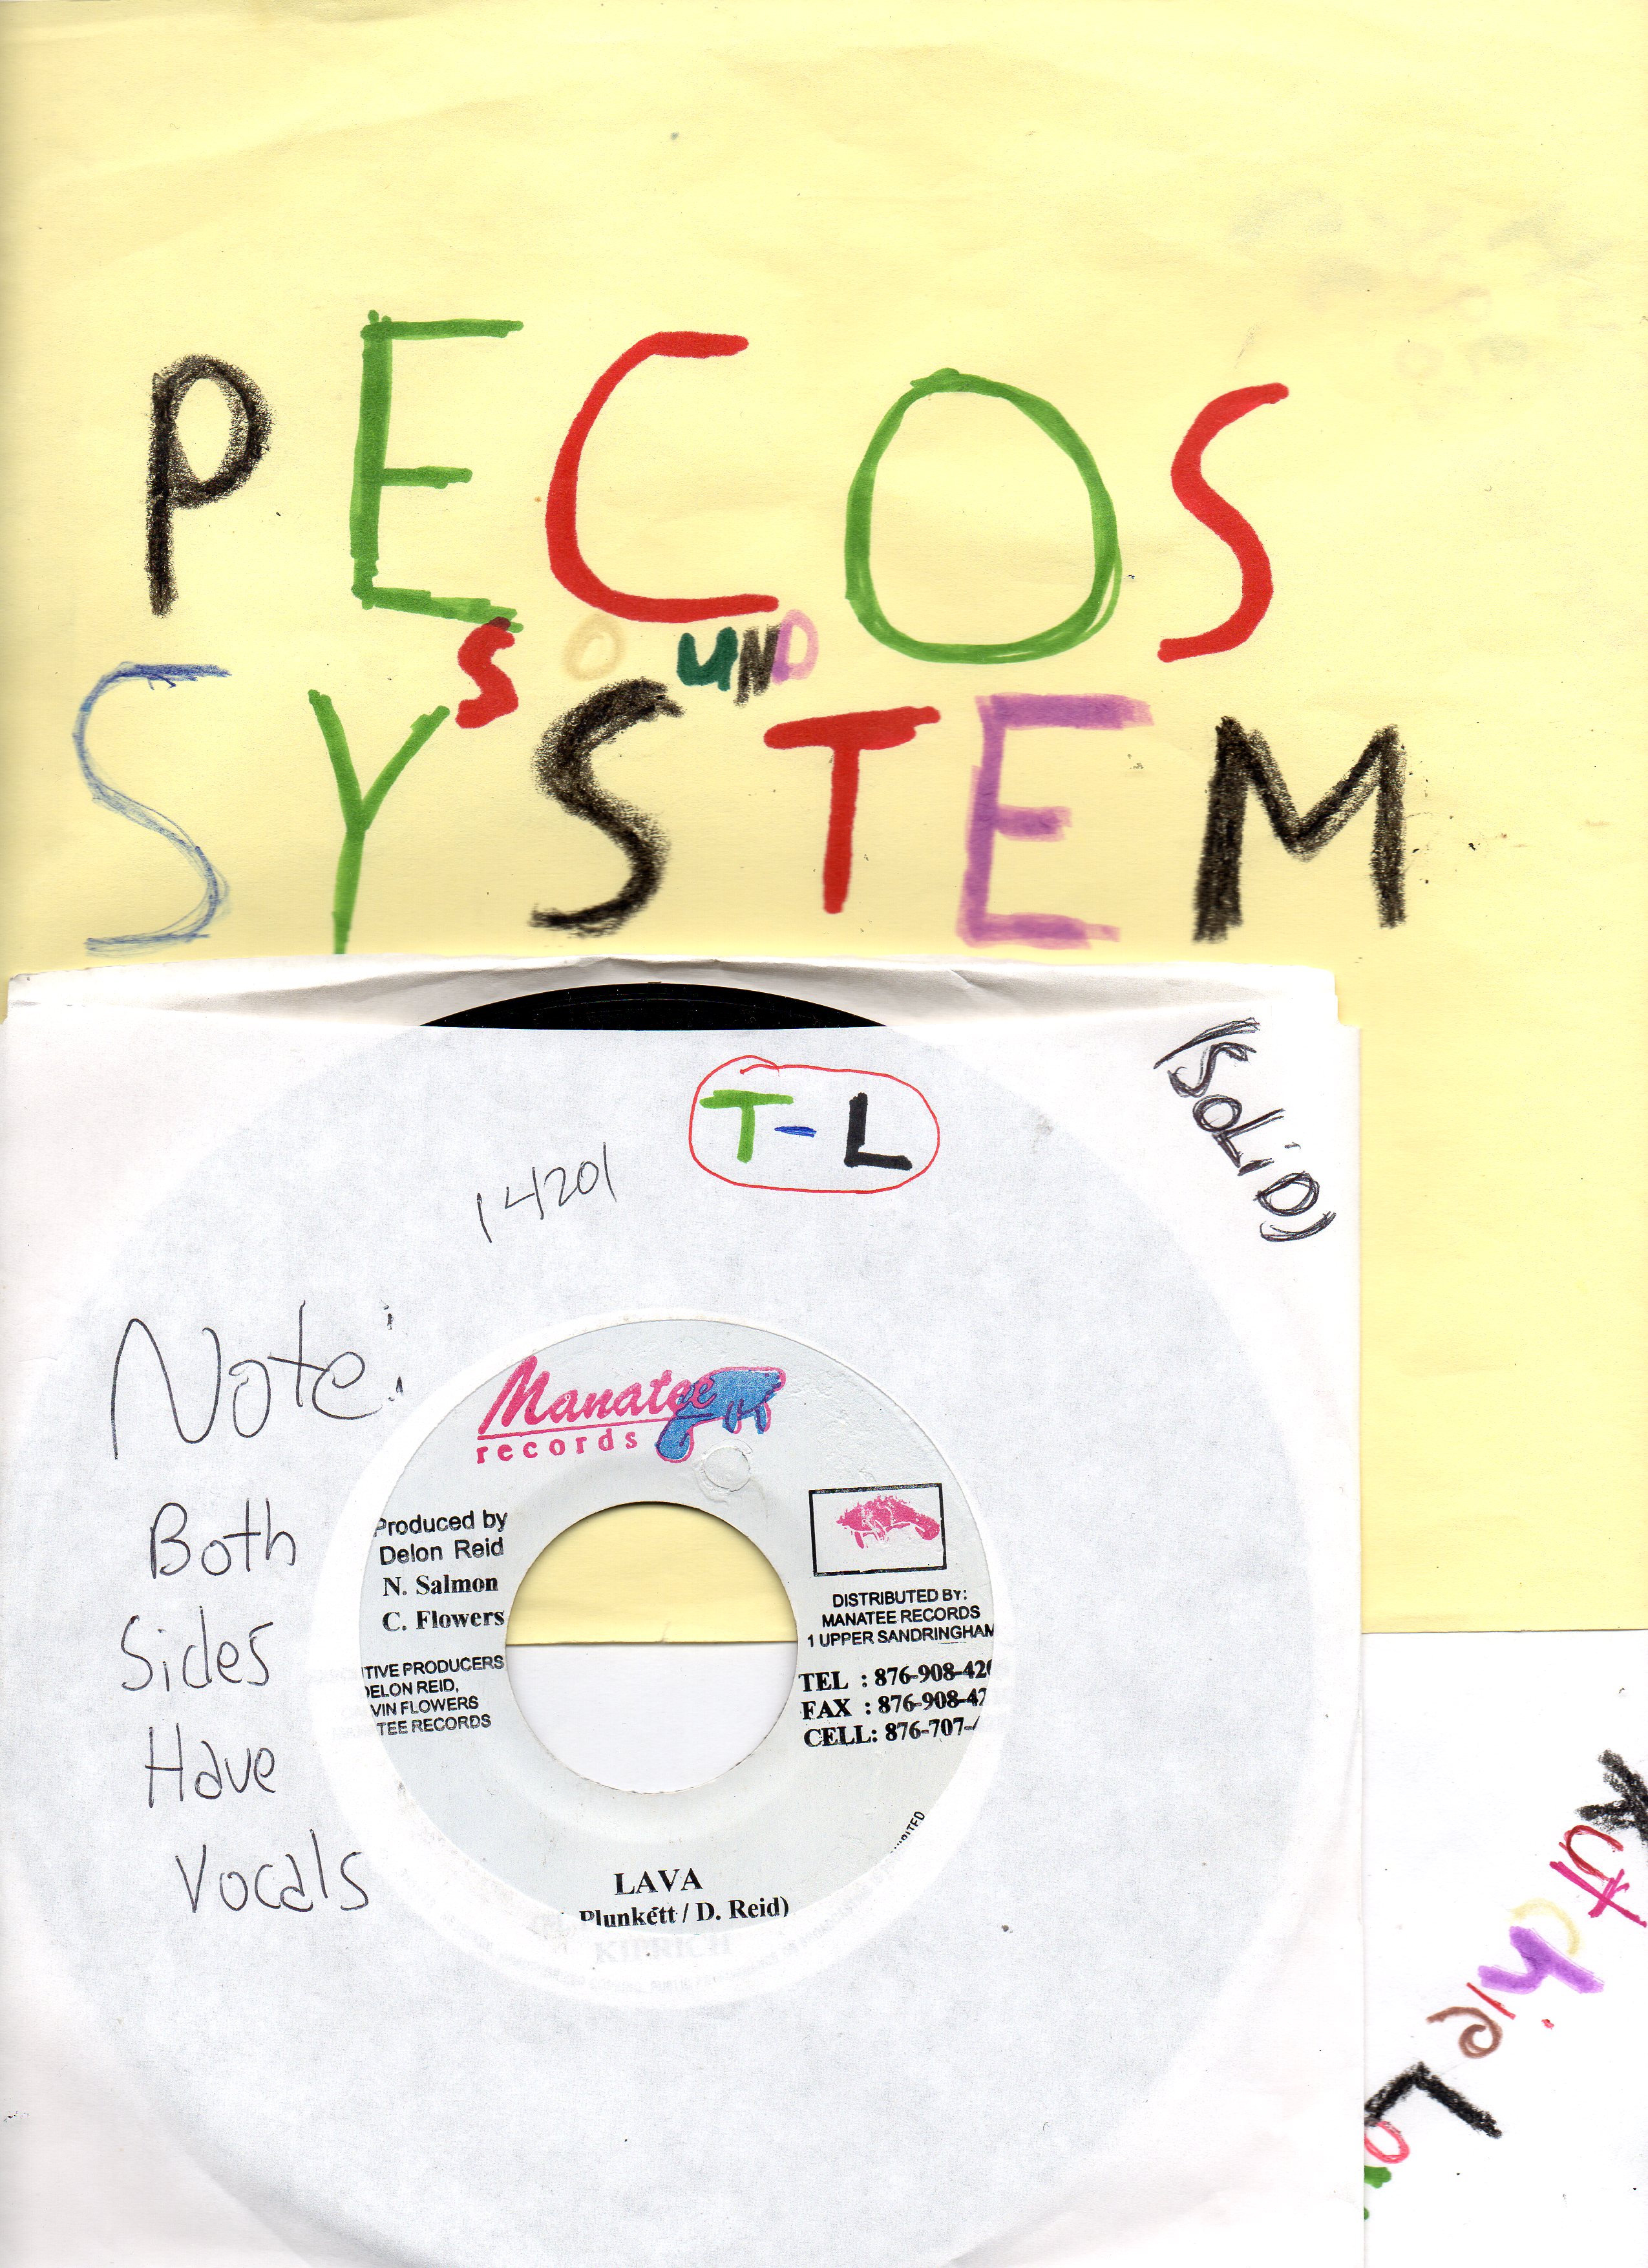 PECOS
SOUND
SYSTEM
T-L
(SOLID)
14201
Note:
Both
Sides
Have
Vocals
Manatee
records
Produced by
Delon Reid
N. Salmon
C. Flowers
TIVE PRODUCERS
DELON REID,
VIN FLOWERS
TEE RECORDS
DISTRIBUTED BY:
MANATEE RECORDS
1 UPPER SANDRINGHAM
TEL : 876-908-420
FAX : 876-908-42
CELL: 876-707-4
LAVA
Plunkett / D. Reid)
KIPRICH